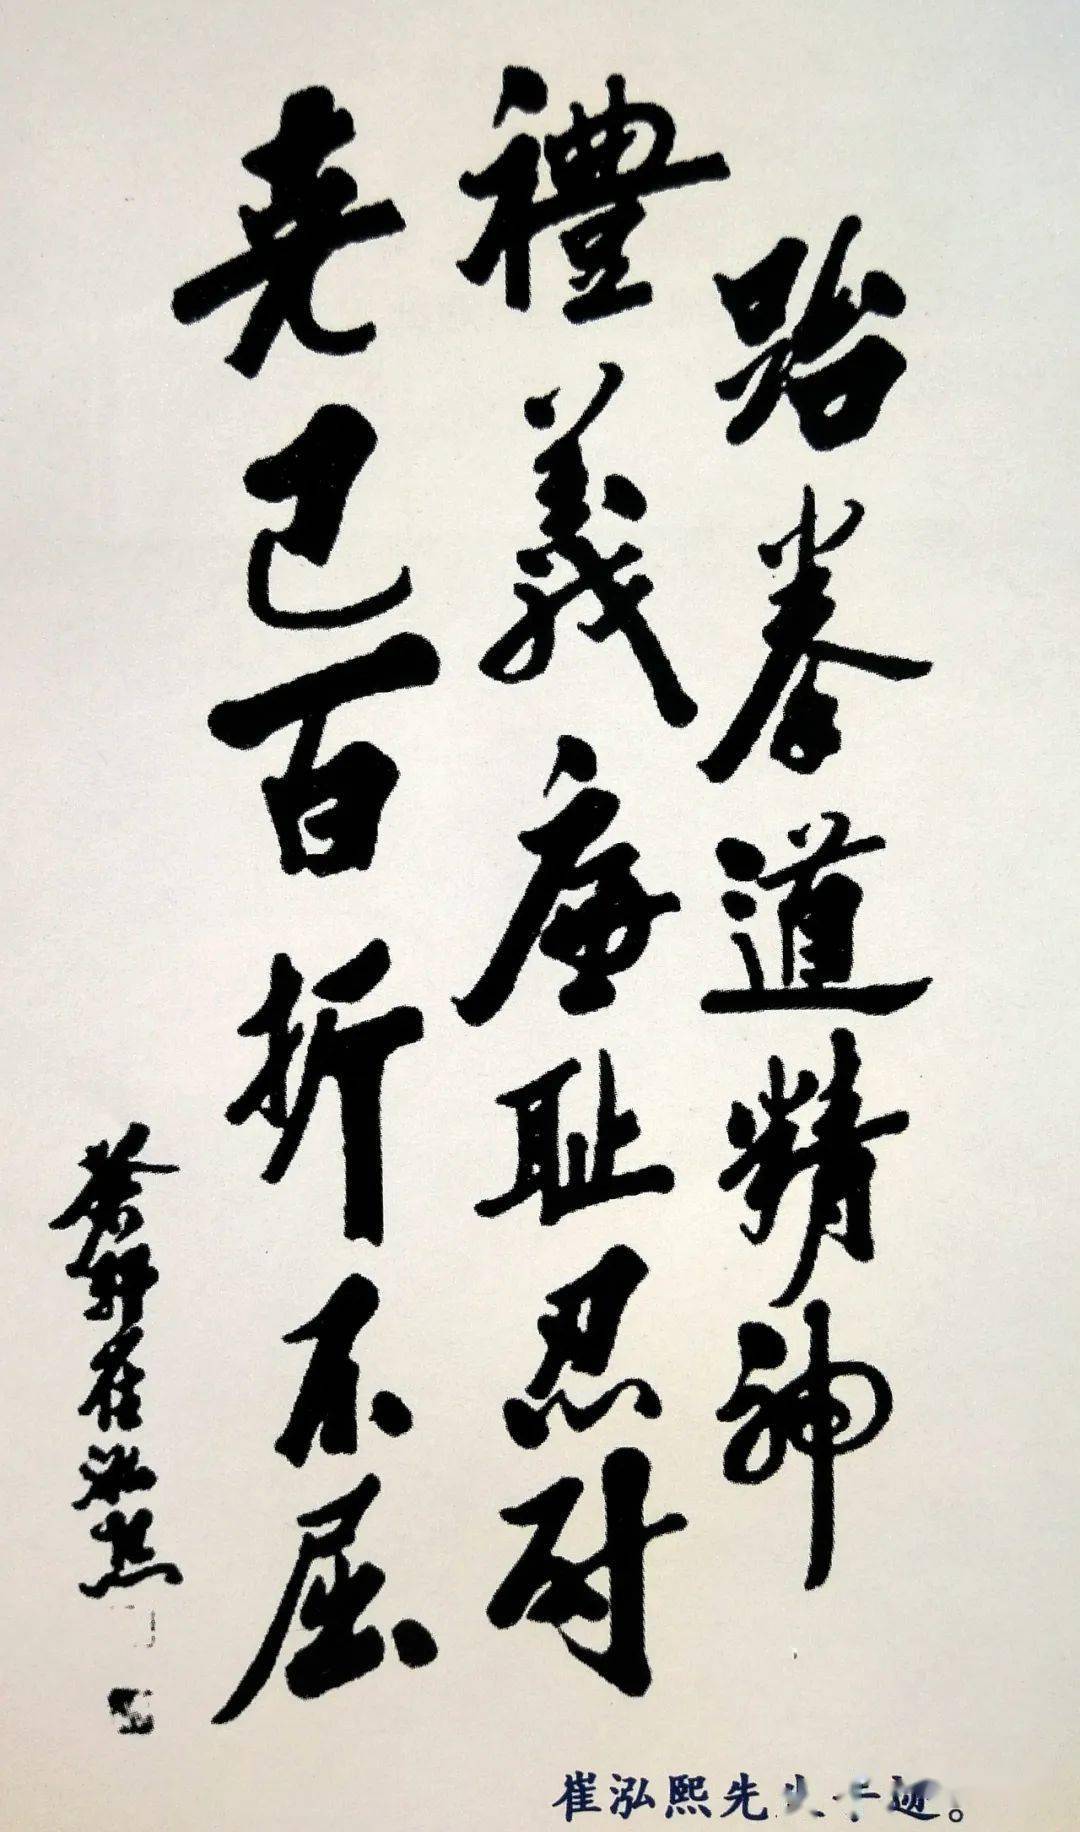 跆拳道精神
禮義廉耻忍耐
克己百折不屈
蒼軒崔泓熙
崔泓熙先生手迹。